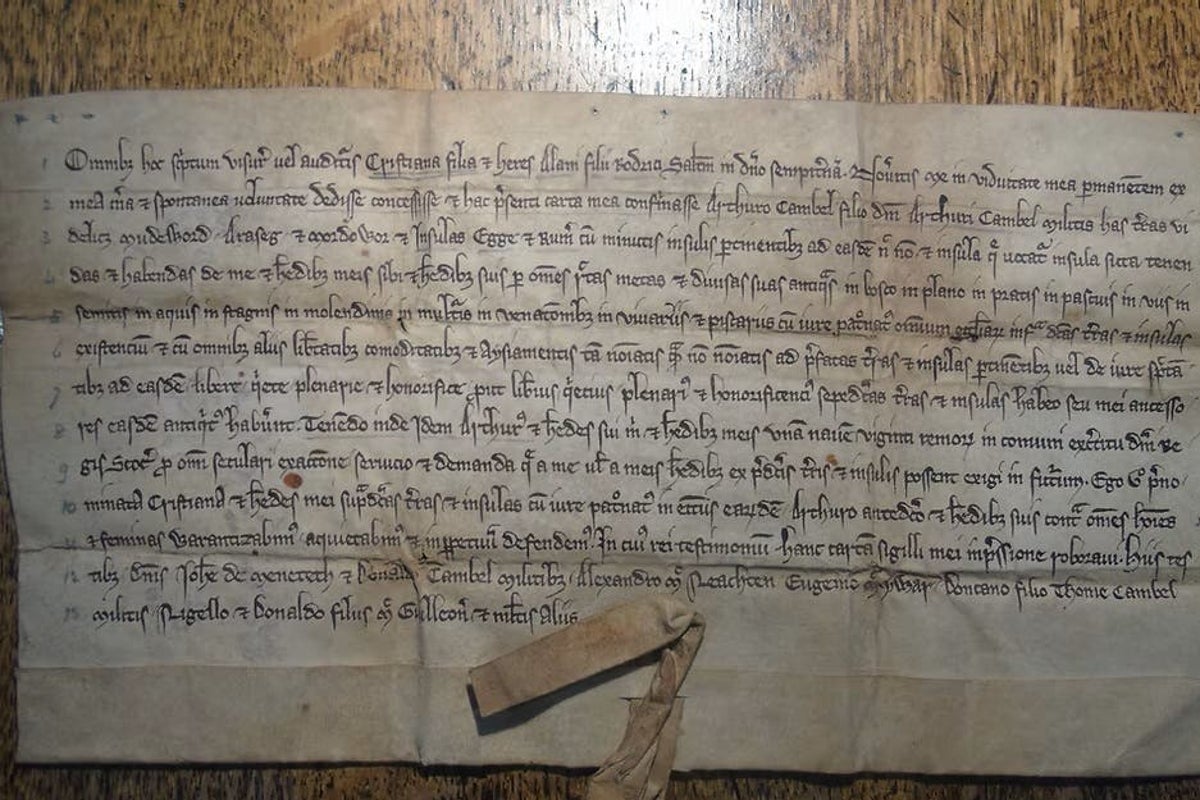 1 Omnibꝫ hoc sc̃ptum visur̃ uel auditur̃ Cristiana filia ⁊ heres Alani filii Rodrici Saltm̃ in dño sempit̃nã. Nou̾itis me in viduitate mea ꝑmanẽtem ex
2 mea m̃a ⁊ spontanea uoluntate dedisse concessisse ⁊ hac p̃senti carta mea confirmasse Arthuro Cambel filio dñi Arthuri Cambel militis has t̃ras vi
3 delicꝫ Mudeword Araseg ⁊ Mordewor ⁊ Insulas Egge ⁊ Rum̃ cũ minutis insulis ꝑtinentibꝫ ad easdẽ ñ nõ ⁊ insula q̃ uocat̃ insula sicca tenen
4 das ⁊ habendas de me ⁊ h̃edibꝫ meis sibi ⁊ h̃edibꝫ suis ꝑ om̃es r̃tas metas ⁊ diuisas suas antiq̃s in bosco in plano in pratis in pascuis in viis in
5 semitis in aquis in stagnis in molendinis in multur̃is in venaconibꝫ in viuariis ⁊ piscariis cũ iure pat̃nat᷒ omnium eccl̃iarꝝ inf̃ d̃cas t̃ras ⁊ insulas
6 existencium ⁊ cũ omnibꝫ aliis lib̃tatibꝫ comoditatibꝫ ⁊ Aysiamentis tã noĩatis q̃ nõ noĩatis ad p̃fatas t̃ras ⁊ insulas ꝑtin̾tibꝫ uel de iure sp̃ctã
7 tibꝫ ad easdẽ libere q̾ete plenarie ⁊ honorifice put lib̾ius q̾ecius plenari᷒ ⁊ honorificenci᷒ sepedc̃as t̃ras ⁊ insulas habeo seu mei ancesso
8 res easdẽ antiq̾t᷒ habũnt. Tenẽdo inde Idem Arthur᷒ ⁊ h̃edes sui m̾ ⁊ h̃edibꝫ meis vnã nauẽ viginti remorꝝ in comuni exc̾itu dñi Re
9 gis Scoc̾ ꝓ om̃i seculari exaccone seruicio ⁊ demanda q̃ a me ul̃ a meis h̃edibꝫ ex p̃dc̃is t̃ris ⁊ insulis possent exigi in fut̾um. Ego u̾o p̃no
10 minata Cristiana ⁊ h̃edes mei sup̃dc̃as t̃ras ⁊ insulas cũ iure pat̾nat᷒ in ecc̃iis earũdẽ Arthuro antedc̃o ⁊ h̃edibꝫ suis cont̃ om̃es hoĩes
11 ⁊ feminas Warantizabim᷒ aquietabim᷒ ⁊ inꝑpetuũ defendem᷒. In cui᷒ rei testimoniũ hanc cartã sigilli mei inp̃ssione roboraui. Hiis tes
12 tibꝫ dñis Joh̃e de Meneteth ⁊ Donaldo Cambel militibꝫ Alexandro mc̃ Neachten Eugenio Doncano filio Thome Cambel
13 militis Nigello ⁊ Donaldo filiis mc̃ Gilleon̾ ⁊ ml̃tis Aliis